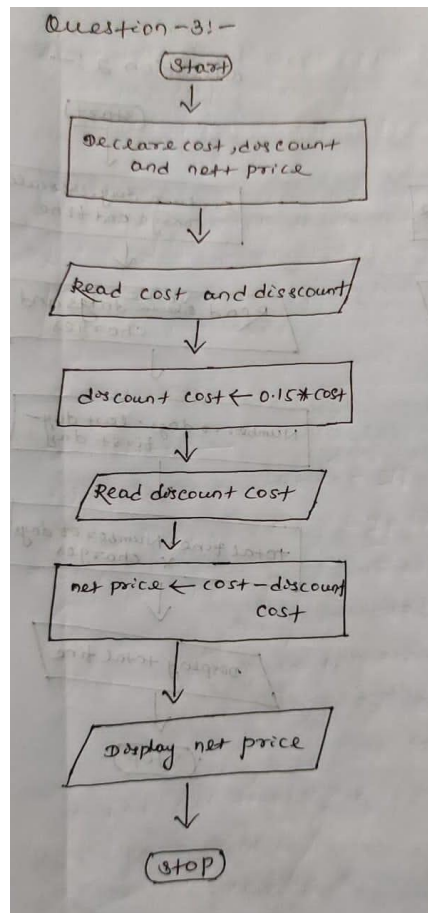 Question-3:-
Start
Declare cost, discount
and nett price
Read cost and disscount
discount cost ← 0.15*cost
Read discount cost
net price ← cost - discount
cost
Display net price
Stop